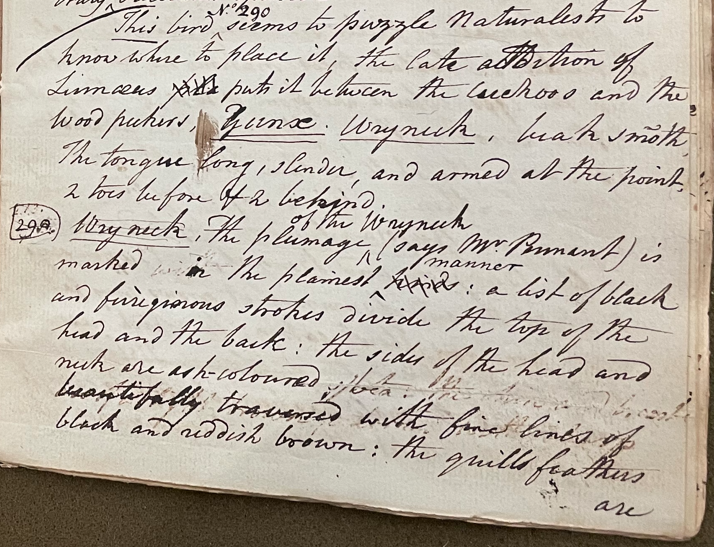 No. 290
This bird seems to puzzle Naturalists to
know where to place it, the late addition of
Linnæus puts it between the Cuckoos and the
Wood peckers, Yunx. Wryneck, beak smoth,
The tongue long, slender, and armed at the point,
2 toes before & 2 behind.
of the Wryneck
290 Wryneck, the plumage (says Mr. Pennant) is
manner
marked in the plainest : a list of black
and ferruginous strokes divide the top of the
head and the back: the sides of the head and
neck are ash-coloured
beautifully traversed with fine lines of
black and reddish brown: the quills feathers
are